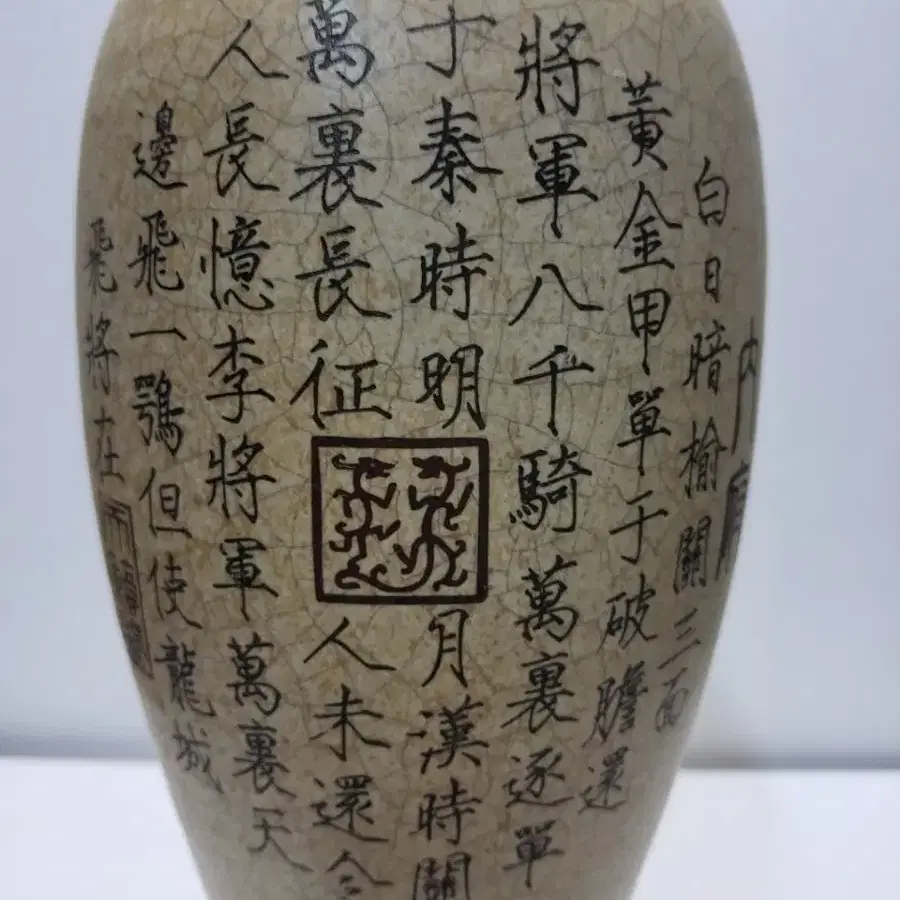 内
白日暗榆關三面
黃金甲單于破膽還
將軍八千騎萬裏逐單
于秦時明月漢時關
萬裏長征人未還
人長憶李將軍萬裏天
邊飛一鶚但使龍城
飛將在